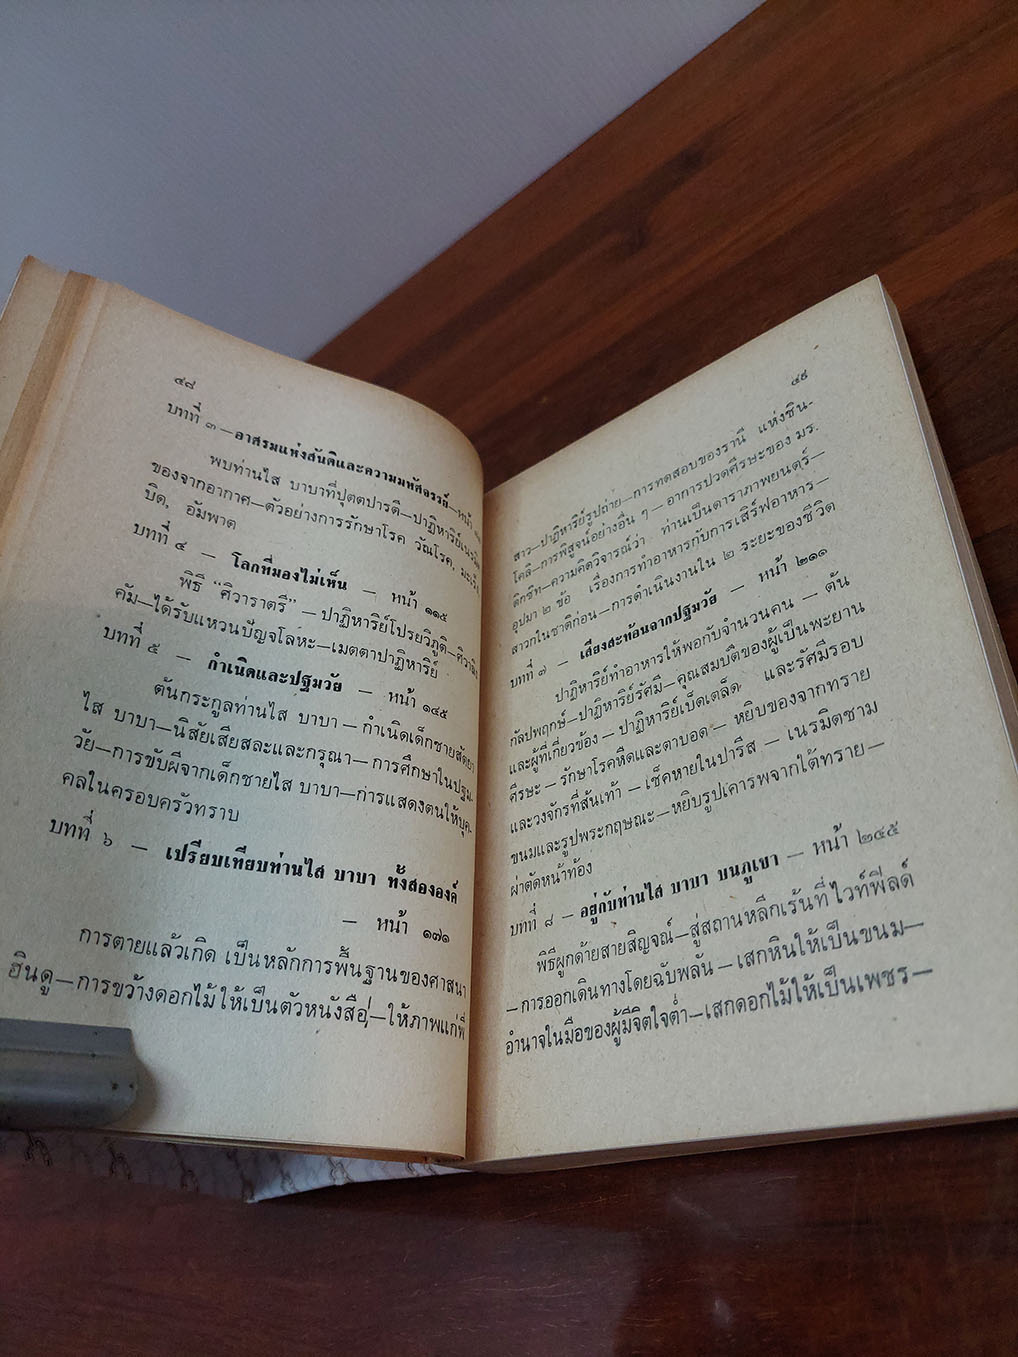 ๔๘
บทที่ ๓ — อาศรมแห่งสันติและความมหัศจรรย์ — หน้า
พบท่านไส บาบาที่ปุตตปารตี — ปาฏิหาริย์เนรมิต
ของจากอากาศ — ตัวอย่างการรักษาโรค วัณโรค, มะเร็ง,
บิด, อัมพาต
บทที่ ๔ — โลกที่มองไม่เห็น — หน้า ๑๑๕
พิธี “ศิวาราตรี” — ปาฏิหาริย์โปรยวิภูติ — ศิวาลึง
คัม — ได้รับแหวนปัญจโลหะ — เมตตาปาฏิหาริย์
บทที่ ๕ — กำเนิดและปฐมวัย — หน้า ๑๔๕
ต้นกระกูลท่านไส บาบา — กำเนิดเด็กชายสัตยา
ไส บาบา — นิสัยเสียสละและกรุณา — การศึกษาในปฐม
วัย — การขับผีจากเด็กชายไส บาบา — การแสดงตนให้บุค
คลในครอบครัวทราบ
บทที่ ๖ — เปรียบเทียบท่านไส บาบา ทั้งสององค์
— หน้า ๑๗๑
การตายแล้วเกิด เป็นหลักการพื้นฐานของศาสนา
ฮินดู — การขว้างดอกไม้ให้เป็นตัวหนังสือ — ให้ภาพแก่พี่
๔๙
สาว — ปาฏิหาริย์รูปถ่าย — การทดสอบของรานี แห่งชิน-
โคลิ — การพิสูจน์อย่างอื่น ๆ — อาการปวดศีรษะของ มร.
ดิกซิท — ความคิดวิจารณ์ว่า ท่านเป็นดาราภาพยนตร์ —
อุปมา ๒ ข้อ เรื่องการทำอาหารกับการเสิร์ฟอาหาร —
สาวกในชาติก่อน — การดำเนินงานใน ๒ ระยะของชีวิต
บทที่ ๗ — เสียงสะท้อนจากปฐมวัย — หน้า ๒๑๑
ปาฏิหาริย์ทำอาหารให้พอกับจำนวนคน — ต้น
กัลปพฤกษ์ — ปาฏิหาริย์รัศมี — คุณสมบัติของผู้เป็นพะยาน
และผู้ที่เกี่ยวข้อง — ปาฏิหาริย์เบ็ดเตล็ด และรัศมีรอบ
ศีรษะ — รักษาโรคหืดและตาบอด — หยิบของจากทราย
และวงจักรที่ส้นเท้า — เช็คหายในปารีส — เนรมิตชาม
ขนมและรูปพระกฤษณะ — หยิบรูปเคารพจากใต้ทราย —
ผ่าตัดหน้าท้อง
บทที่ ๘ — อยู่กับท่านไส บาบา บนภูเขา — หน้า ๒๔๕
พิธีผูกด้ายสายสิญจณ์ — สู่สถานหลีกเร้นที่ไวท์ฟิลด์
— การออกเดินทางโดยฉับพลัน — เสกหินให้เป็นขนม —
อำนาจในมือของผู้มีจิตใจต่ำ — เสกดอกไม้ให้เป็นเพชร —